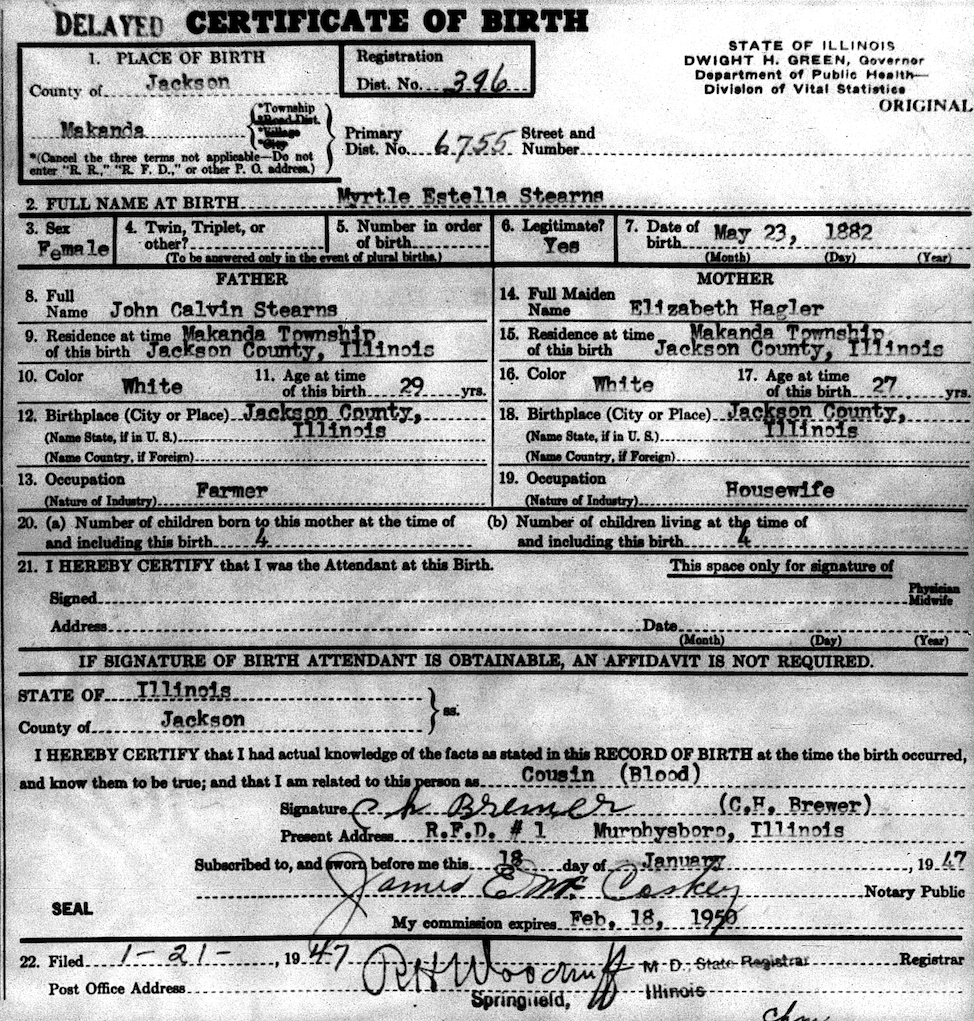 DELAYED CERTIFICATE OF BIRTH
1. PLACE OF BIRTH
County of Jackson
Makanda
*Township
*Road Dist.
*Village
*City
*(Cancel the three terms not applicable—Do not
enter "R. R.," "R. F. D.," or other P. O. address.)
Registration
Dist. No. 396
Primary
Dist. No. 6755
Street and
Number
STATE OF ILLINOIS
DWIGHT H. GREEN, Governor
Department of Public Health—
Division of Vital Statistics
ORIGINAL
2. FULL NAME AT BIRTH Myrtle Estella Stearns
3. Sex
Female
4. Twin, Triplet, or
other?
5. Number in order
of birth
(To be answered only in the event of plural births.)
6. Legitimate?
Yes
7. Date of
birth May 23, 1882
(Month) (Day) (Year)
FATHER
8. Full
Name John Calvin Stearns
9. Residence at time Makanda Township
of this birth Jackson County, Illinois
10. Color
White
11. Age at time
of this birth 29 yrs.
12. Birthplace (City or Place) Jackson County,
(Name State, if in U. S.) Illinois
(Name Country, if Foreign)
13. Occupation
(Nature of Industry) Farmer
MOTHER
14. Full Maiden
Name Elizabeth Hagler
15. Residence at time Makanda Township
of this birth Jackson County, Illinois
16. Color
White
17. Age at time
of this birth 27 yrs.
18. Birthplace (City or Place) Jackson County,
(Name State, if in U. S.) Illinois
(Name Country, if Foreign)
19. Occupation
(Nature of Industry) Housewife
20. (a) Number of children born to this mother at the time of
and including this birth 4
(b) Number of children living at the time of
and including this birth 4
21. I HEREBY CERTIFY that I was the Attendant at this Birth. This space only for signature of
Signed Physician
Midwife
Address Date
(Month) (Day) (Year)
IF SIGNATURE OF BIRTH ATTENDANT IS OBTAINABLE, AN AFFIDAVIT IS NOT REQUIRED.
STATE OF Illinois
County of Jackson
ss.
I HEREBY CERTIFY that I had actual knowledge of the facts as stated in this RECORD OF BIRTH at the time the birth occurred,
and know them to be true; and that I am related to this person as Cousin (Blood)
Signature C H Brewer (C.H. Brewer)
Present Address R.F.D. # 1 Murphysboro, Illinois
Subscribed to, and sworn before me this 18 day of January, 1947
James E Mc Coskey Notary Public
SEAL
My commission expires Feb, 18, 1950
22. Filed 1-21-, 1947 P H Woodruff M D., State Registrar Registrar
Post Office Address Springfield, Illinois